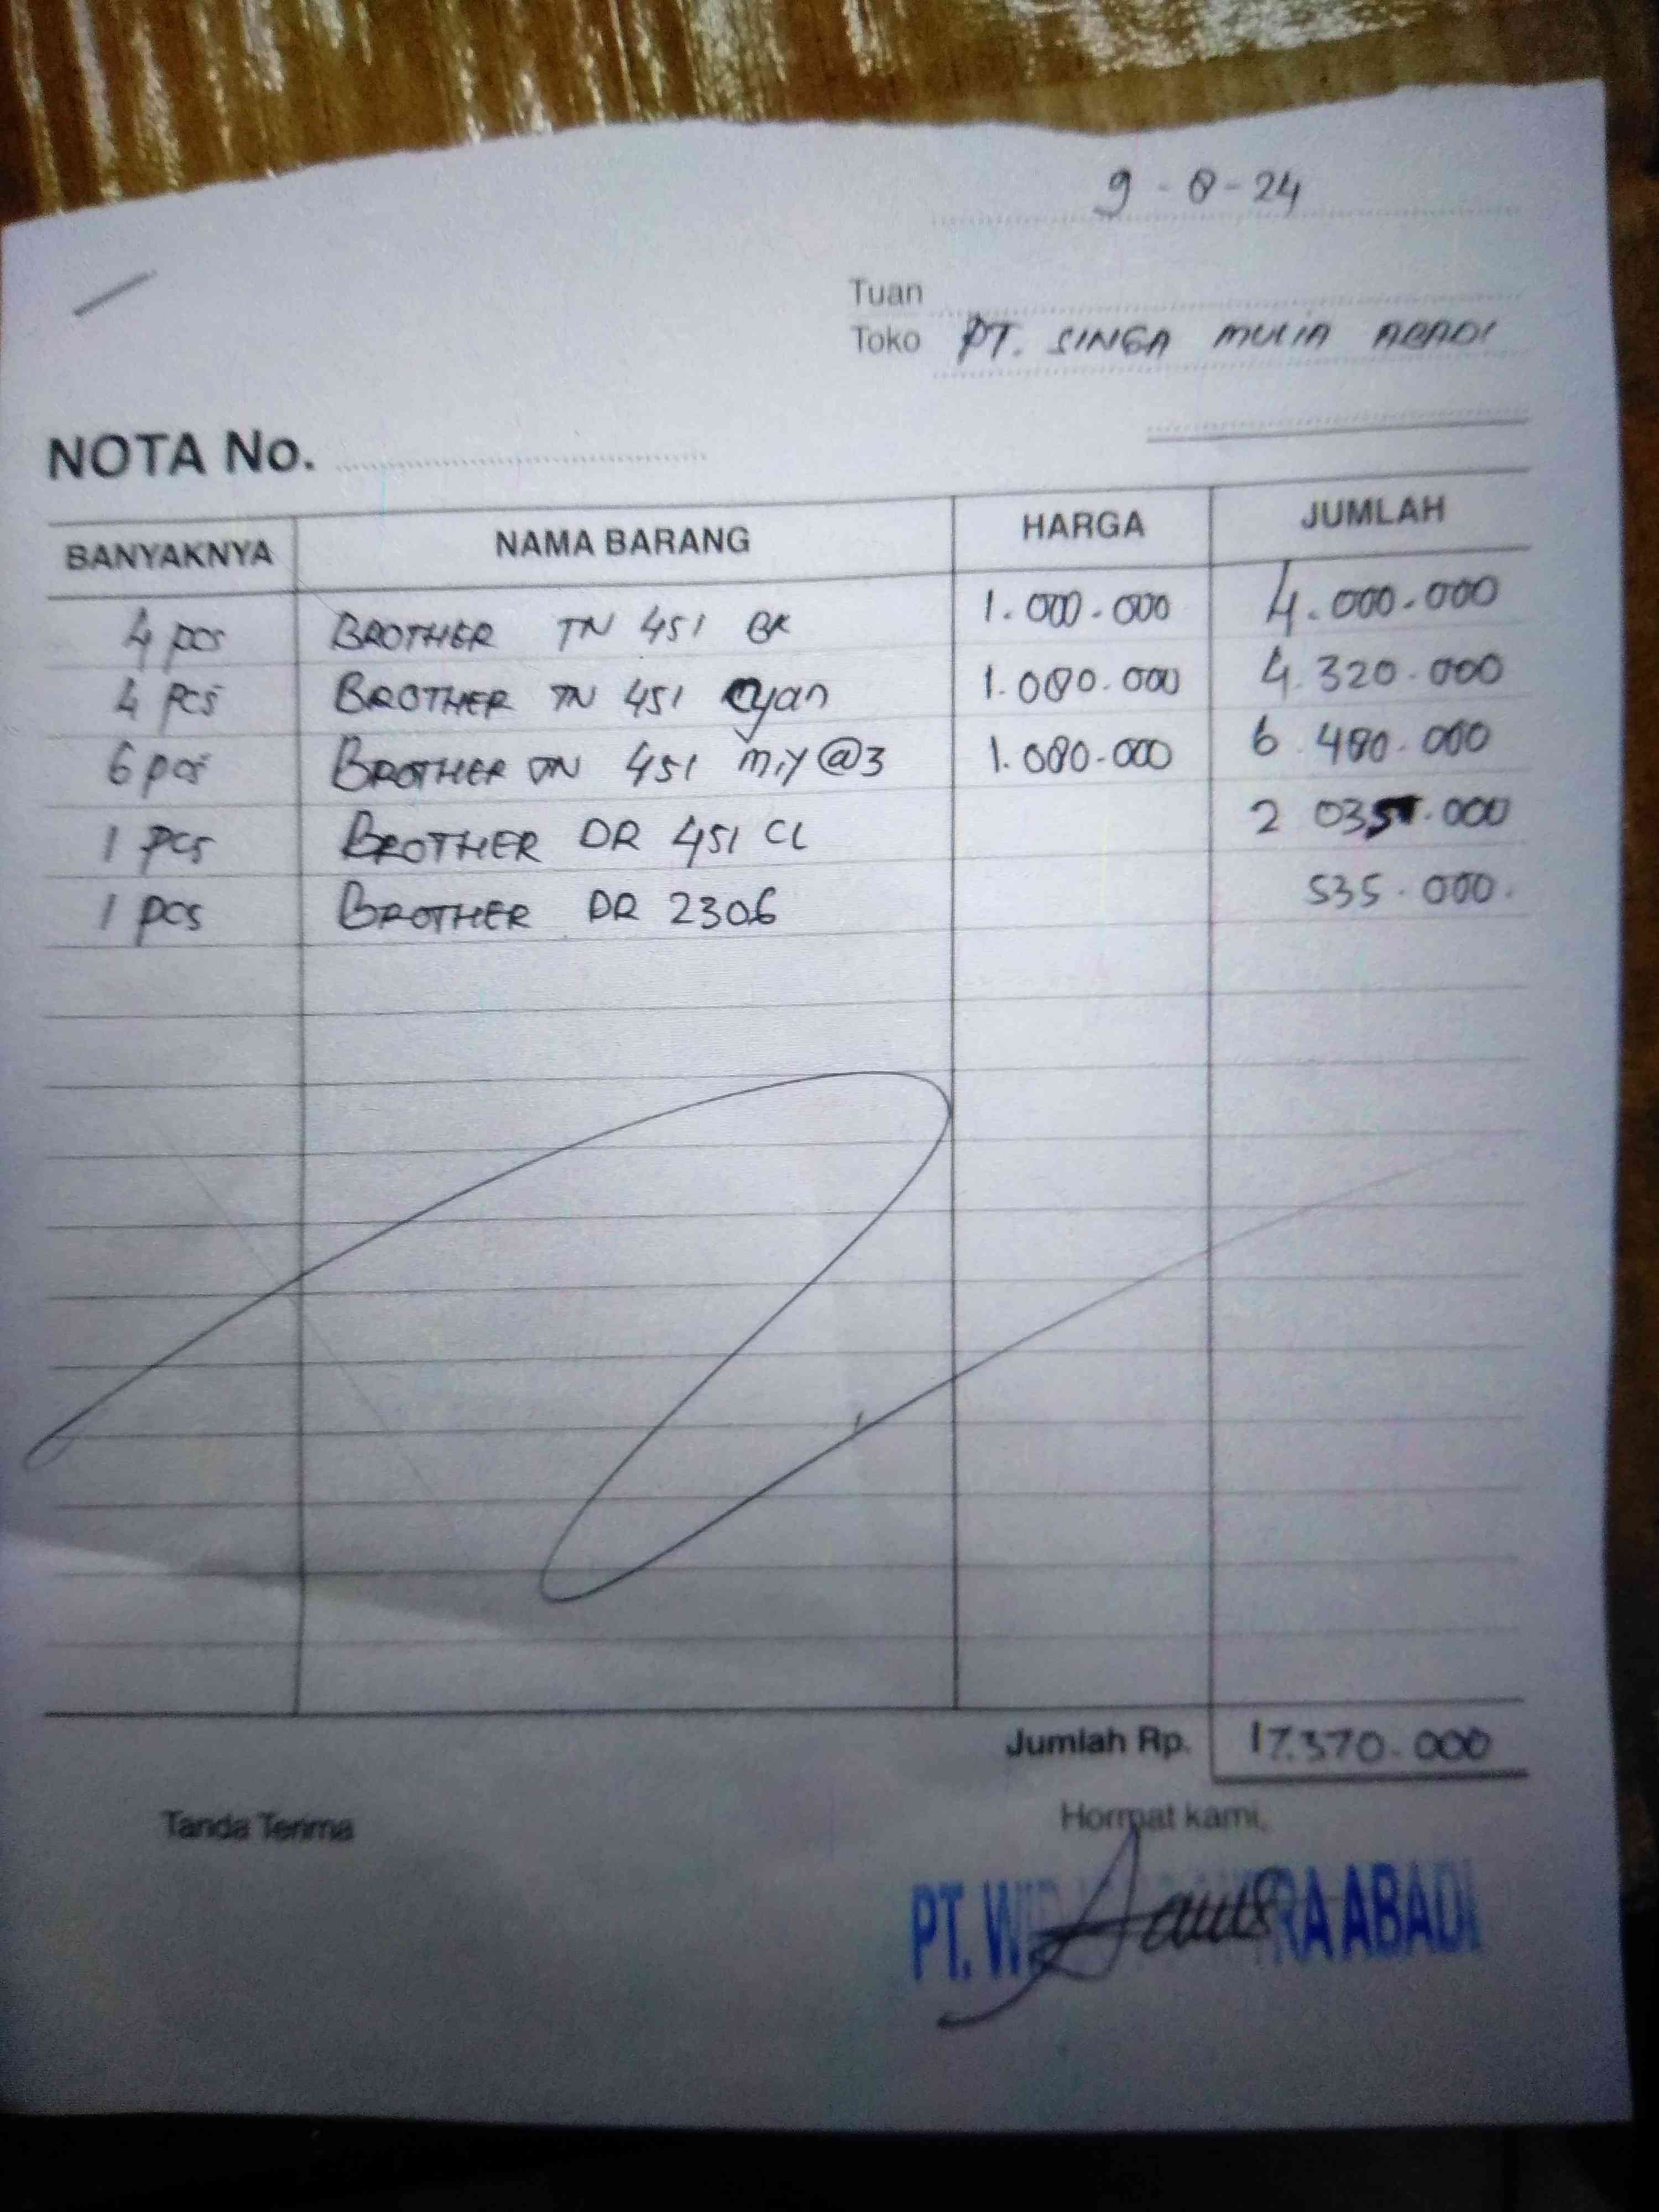 9-8-24
Tuan
Toko PT. SINGA MULIA ABADI
NOTA No.
BANYAKNYA NAMA BARANG HARGA JUMLAH
4 pcs BROTHER TN 451 BK 1.000.000 4.000.000
4 pcs BROTHER TN 451 Cyan 1.080.000 4.320.000
6 pcs BROTHER TN 451 m,y @3 1.080.000 6.480.000
1 pcs BROTHER DR 451 CL 2 035.000
1 pcs BROTHER DR 2306 535.000.
Jumlah Rp. 17.370.000
Tanda Terima Hormat kami,
PT. ABADI